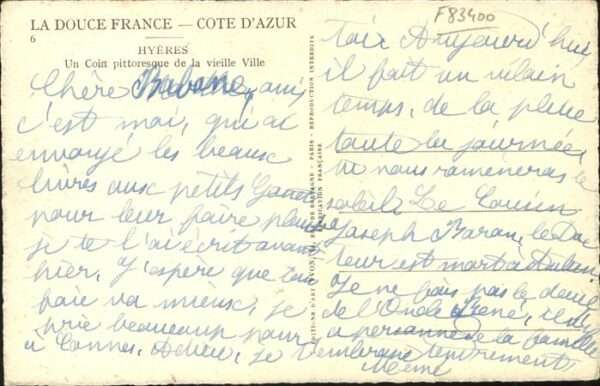 LA DOUCE FRANCE — COTE D'AZUR
6
HYÈRES
Un Coin pittoresque de la vieille Ville
F83400
Chère Babane, oui
c'est moi, qui ai
envoyé les beaux
livres aux petits
pour leur faire plaisir
je te l'ai écrit avant
hier, J'espère que ton
foie va mieux, je
prie beaucoup pour
à Cannes, Adieu, je
toi Aujourd'hui
il fait un vilain
temps, de la pluie
toute la journée,
tu nous ramèneras le
soleil Le Cousin
Joseph Baran, le Doc
teur est mort à
Je ne fais pas le deuil
de l'Oncle René, il n'y
a personne de la famille
t'embrasse tendrement
Mémé